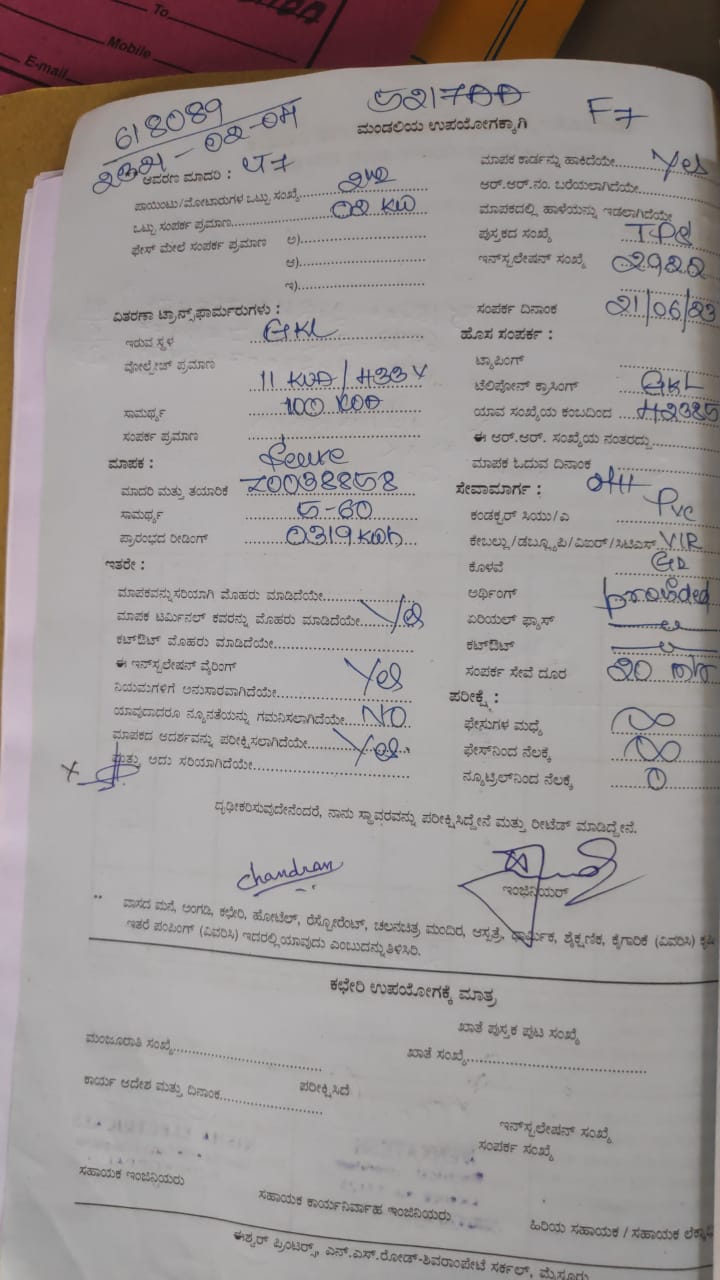 To
Mobile
E-mail
618089
521700
F7
ಮಂಡಲಿಯ ಉಪಯೋಗಕ್ಕಾಗಿ
ಆವರಣ ಮಾದರಿ :
ಮಾಪಕ ಕಾರ್ಡನ್ನು ಹಾಕಿದೆಯೇ Yes
ಪಾಯಿಂಟು/ಮೋಟಾರುಗಳ ಒಟ್ಟು ಸಂಖ್ಯೆ
ಆರ್.ಆರ್.ನಂ. ಬರೆಯಲಾಗಿದೆಯೇ
ಒಟ್ಟು ಸಂಪರ್ಕ ಪ್ರಮಾಣ 02 KW
ಮಾಪಕದಲ್ಲಿ ಹಾಳೆಯನ್ನು ಇಡಲಾಗಿದೆಯೇ
ಫೇಸ್ ಮೇಲೆ ಸಂಪರ್ಕ ಪ್ರಮಾಣ ಅ)
ಪುಸ್ತಕದ ಸಂಖ್ಯೆ
ಆ)
ಇನ್‌ಸ್ಟಲೇಷನ್ ಸಂಖ್ಯೆ 02922
ಇ)
ವಿತರಣಾ ಟ್ರಾನ್ಸ್‌ಫಾರ್ಮರುಗಳು :
ಸಂಪರ್ಕ ದಿನಾಂಕ 21/06/23
ಇರುವ ಸ್ಥಳ GKL
ಹೊಸ ಸಂಪರ್ಕ :
ವೋಲ್ಟೇಜ್ ಪ್ರಮಾಣ
ಟ್ಯಾಪಿಂಗ್
11 KVA / 433 V
ಟೆಲಿಪೋನ್ ಕ್ರಾಸಿಂಗ್ GKL
ಸಾಮರ್ಥ್ಯ 100 KVA
ಯಾವ ಸಂಖ್ಯೆಯ ಕಂಬದಿಂದ H2385
ಸಂಪರ್ಕ ಪ್ರಮಾಣ
ಈ ಆರ್.ಆರ್. ಸಂಖ್ಯೆಯ ನಂತರದ್ದು
ಮಾಪಕ :
ಮಾಪಕ ಓದುವ ದಿನಾಂಕ
ಮಾದರಿ ಮತ್ತು ತಯಾರಿಕೆ Z0038858
ಸೇವಾಮಾರ್ಗ : OH
ಸಾಮರ್ಥ್ಯ 5-60
ಕಂಡಕ್ಟರ್ ಸಿಯು/ಎ Pvc
ಪ್ರಾರಂಭದ ರೀಡಿಂಗ್ 0319 KWh
ಕೇಬಲ್ಲು/ಡಬ್ಲ್ಯೂಪಿ/ವಿಐರ್/ಸಿಟಿಎಸ್ VIR
ಇತರೇ :
ಕೊಳವೆ GI
ಮಾಪಕವನ್ನು ಸರಿಯಾಗಿ ಮೊಹರು ಮಾಡಿದೆಯೇ
ಅರ್ಥಿಂಗ್ provided
ಮಾಪಕ ಟರ್ಮಿನಲ್ ಕವರನ್ನು ಮೊಹರು ಮಾಡಿದೆಯೇ Yes
ಏರಿಯಲ್ ಫ್ಯೂಸ್
ಕಟ್‌ಔಟ್ ಮೊಹರು ಮಾಡಿದೆಯೇ
ಕಟ್‌ಔಟ್
ಈ ಇನ್‌ಸ್ಟಲೇಷನ್ ವೈರಿಂಗ್
ಸಂಪರ್ಕ ಸೇವೆ ದೂರ 20
ನಿಯಮಗಳಿಗೆ ಅನುಸಾರವಾಗಿದೆಯೇ Yes
ಪರೀಕ್ಷೆ :
ಯಾವುದಾದರೂ ನ್ಯೂನತೆಯನ್ನು ಗಮನಿಸಲಾಗಿದೆಯೇ NO
ಫೇಸುಗಳ ಮಧ್ಯೆ ∞
ಮಾಪಕದ ಆದರ್ಶವನ್ನು ಪರೀಕ್ಷಿಸಲಾಗಿದೆಯೇ Yes
ಫೇಸ್‌ನಿಂದ ನೆಲಕ್ಕೆ ∞
ಮತ್ತು ಅದು ಸರಿಯಾಗಿದೆಯೇ
ನ್ಯೂಟ್ರಿಲ್‌ನಿಂದ ನೆಲಕ್ಕೆ 0
ದೃಢೀಕರಿಸುವುದೇನೆಂದರೆ, ನಾನು ಸ್ಥಾವರವನ್ನು ಪರೀಕ್ಷಿಸಿದ್ದೇನೆ ಮತ್ತು ರೀಟೆಡ್ ಮಾಡಿದ್ದೇನೆ.
chandran
ಇಂಜಿನಿಯರ್
** ವಾಸದ ಮನೆ, ಅಂಗಡಿ, ಕಛೇರಿ, ಹೋಟೆಲ್, ರೆಸ್ಟೋರೆಂಟ್, ಚಲನಚಿತ್ರ ಮಂದಿರ, ಆಸ್ಪತ್ರೆ, ಧಾರ್ಮಿಕ, ಶೈಕ್ಷಣಿಕ, ಕೈಗಾರಿಕೆ (ವಿವರಿಸಿ)
ಇತರೆ ಪಂಪಿಂಗ್ (ವಿವರಿಸಿ) ಇದರಲ್ಲಿ ಯಾವುದು ಎಂಬುದನ್ನು ತಿಳಿಸಿರಿ.
ಕಛೇರಿ ಉಪಯೋಗಕ್ಕೆ ಮಾತ್ರ
ಖಾತೆ ಪುಸ್ತಕ ಪುಟ ಸಂಖ್ಯೆ
ಮಂಜೂರಾತಿ ಸಂಖ್ಯೆ
ಖಾತೆ ಸಂಖ್ಯೆ
ಕಾರ್ಯ ಆದೇಶ ಮತ್ತು ದಿನಾಂಕ
ಪರೀಕ್ಷಿಸಿದೆ
ಇನ್‌ಸ್ಟಲೇಷನ್ ಸಂಖ್ಯೆ
ಸಂಪರ್ಕ ಸಂಖ್ಯೆ
ಸಹಾಯಕ ಇಂಜಿನಿಯರು
ಸಹಾಯಕ ಕಾರ್ಯನಿರ್ವಾಹ ಇಂಜಿನಿಯರು
ಹಿರಿಯ ಸಹಾಯಕ / ಸಹಾಯಕ
ಈಶ್ವರ್ ಪ್ರಿಂಟರ್ಸ್, ಎನ್.ಎಸ್.ರೋಡ್-ಶಿವರಾಂಪೇಟೆ ಸರ್ಕಲ್, ಮೈಸೂರು